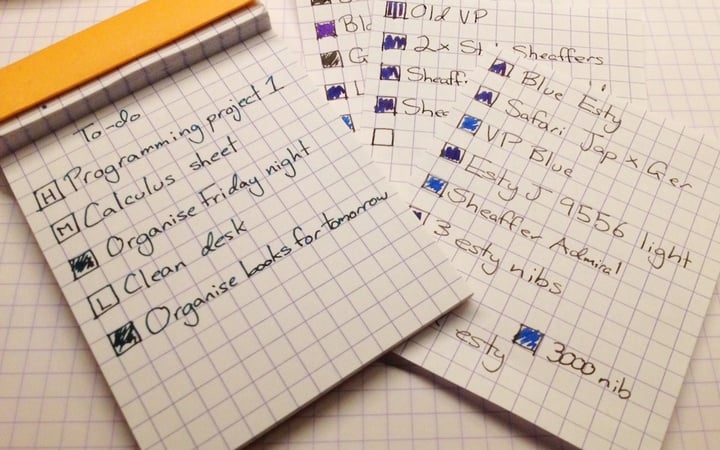 To-do
H Programming project 1
M Calculus sheet
Organise Friday night
L Clean desk
Organise books for tomorrow
Old VP
2x St Sheaffers
Sheaff
Shee
Blue Esty
Safari Jap x Ger
VP Blue
Esty J 9556 light
Sheaffer Admiral
3 esty nibs
esty
3000 nib